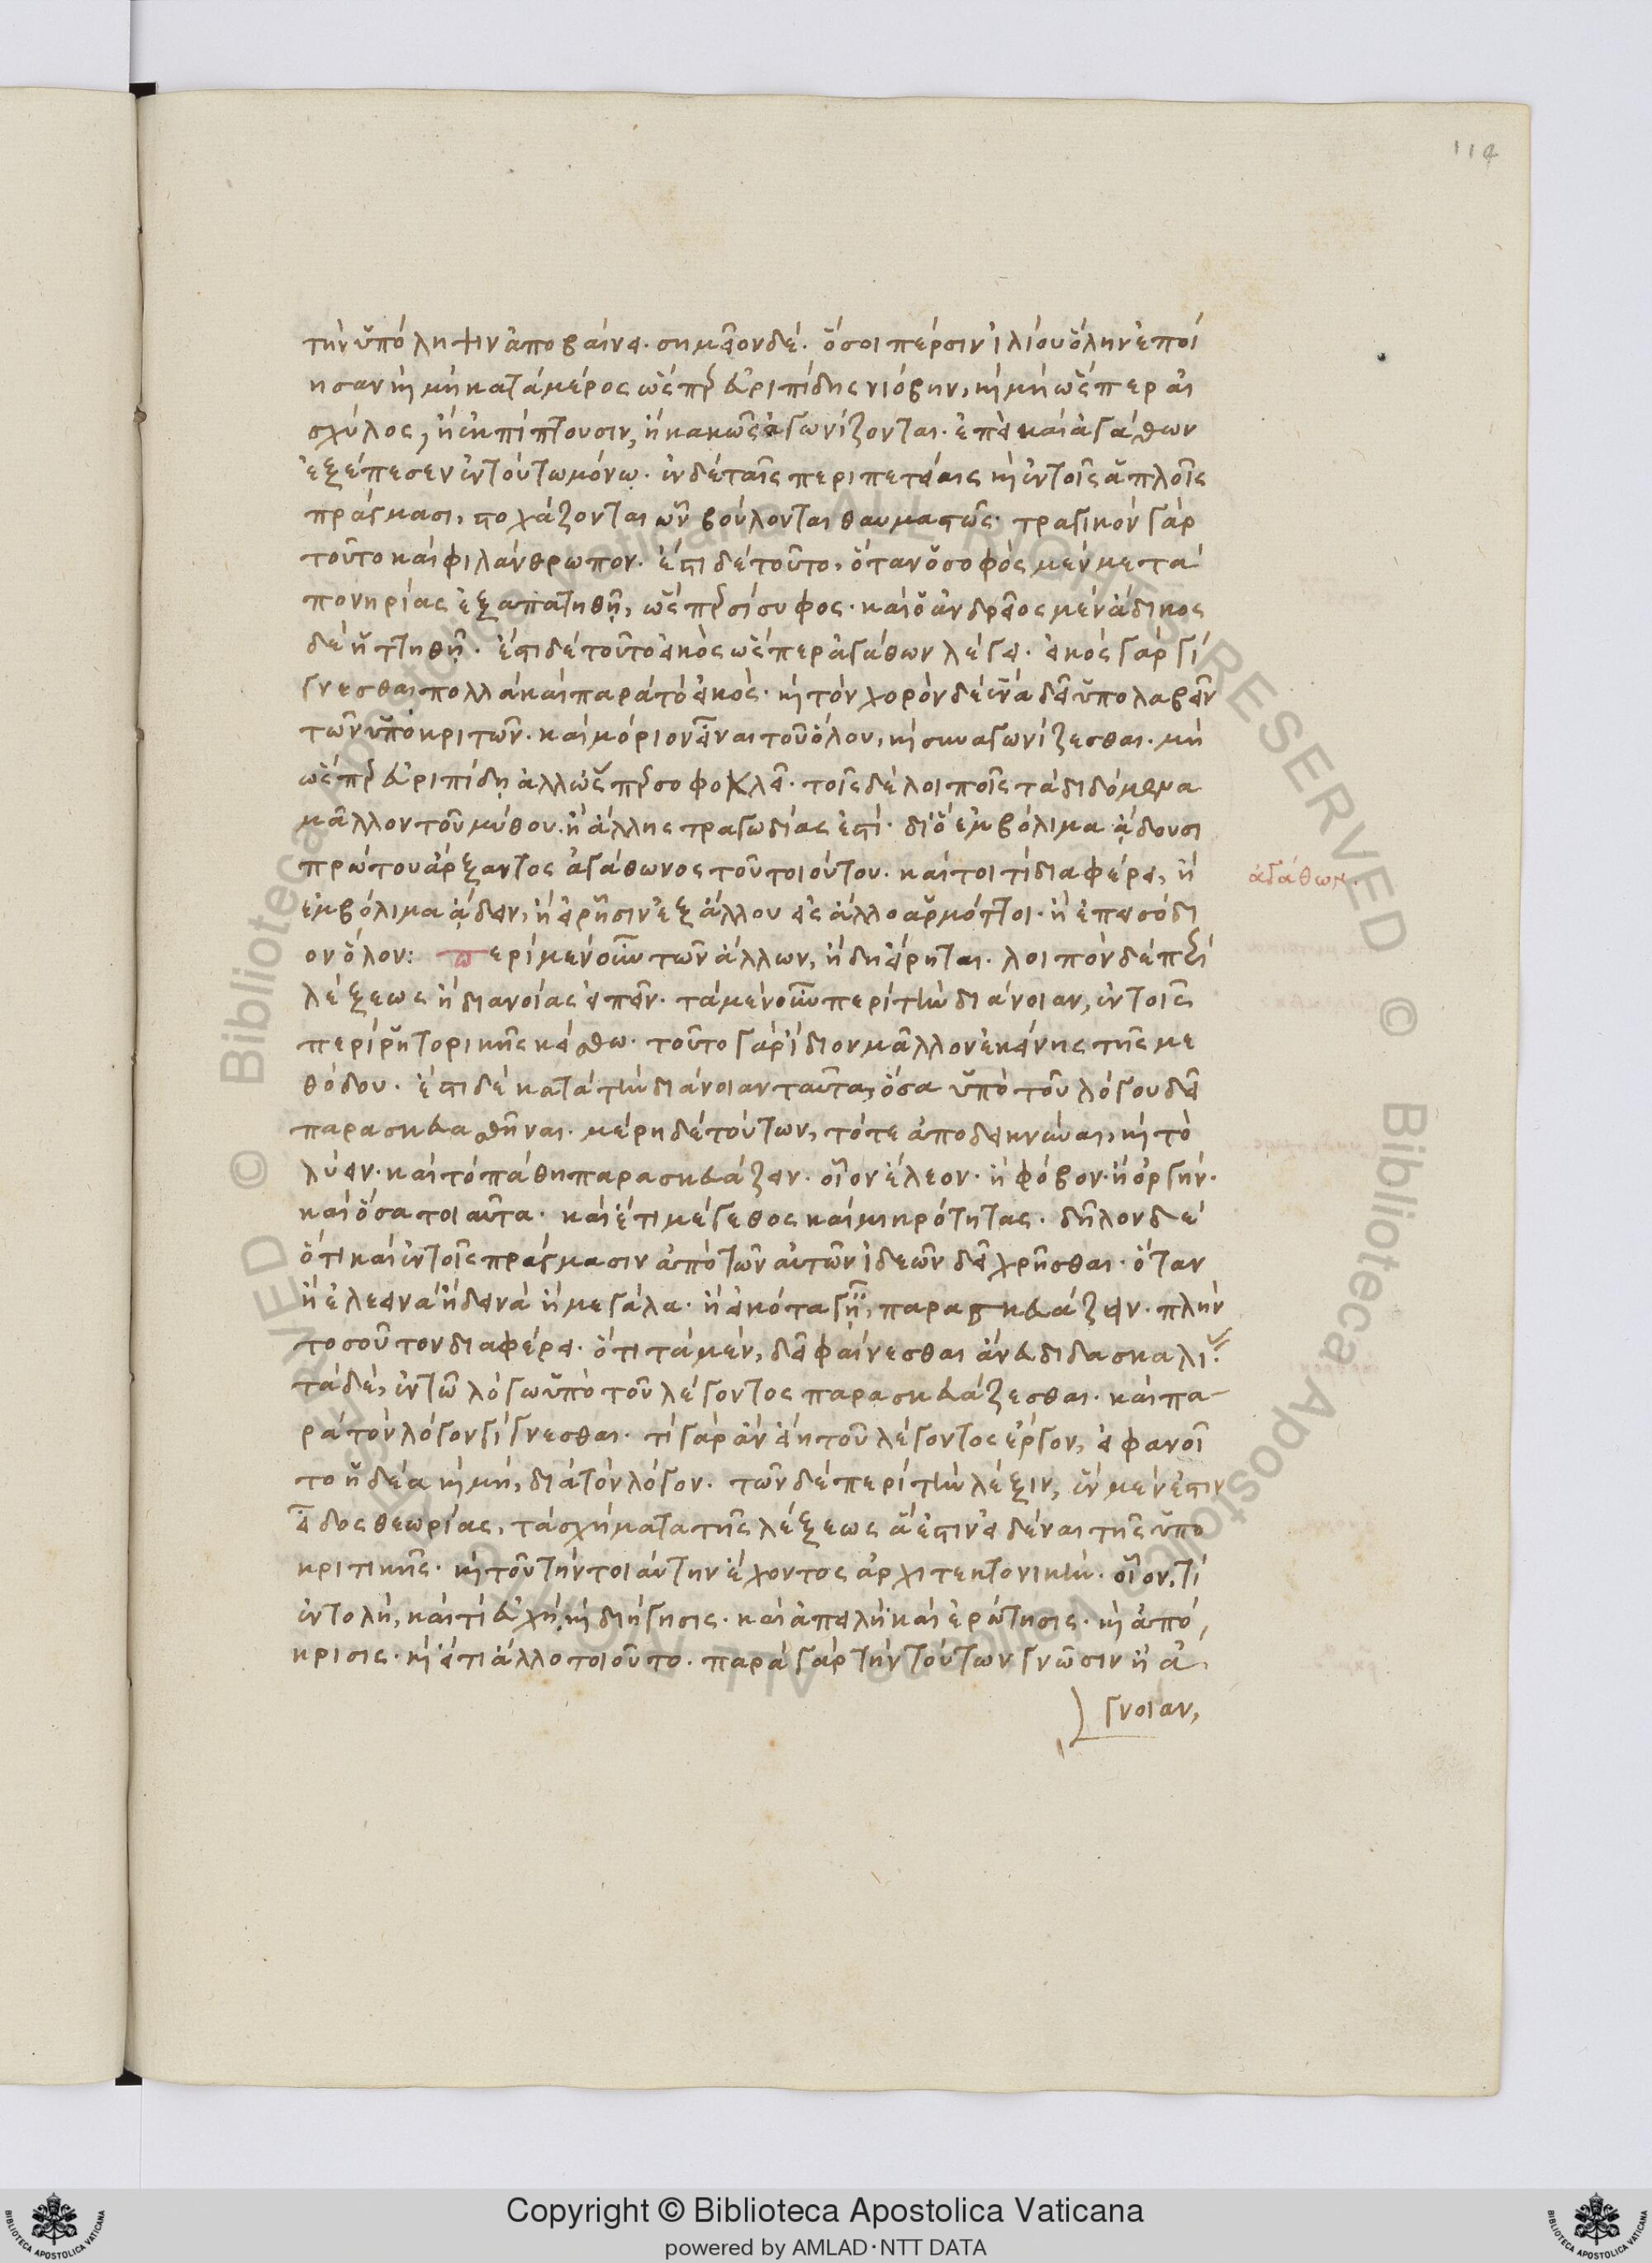 114
τὴν ὑπόληψιν ἀποβαίνει. σημεῖον δέ. ὅσοι πέρσιν ἰλίου ὅλην ἐποί
ησαν καὶ μὴ κατὰ μέρος ὥσπερ εὐριπίδης νιόβην, καὶ μὴ ὥσπερ αἰ
σχύλος, ἢ ἐκπίπτουσιν, ἢ κακῶς ἀγωνίζονται. ἐπεὶ καὶ ἀγάθων
ἐξέπεσεν ἐν τούτω μόνῳ. ἐν δὲ ταῖς περιπετείαις καὶ ἐν τοῖς ἁπλοῖς
πράγμασι, στοχάζονται ὧν βούλονται θαυμαστῶς. τραγικὸν γὰρ
τοῦτο καὶ φιλάνθρωπον. ἔστι δὲ τοῦτο, ὅταν ὁ σοφὸς μὲν μετὰ
πονηρίας ἐξαπατηθῇ, ὥσπερ σίσυφος. καὶ ὁ ἀνδρεῖος μὲν ἄδικος
δὲ ἡττηθῇ. ἔστι δὲ τοῦτο εἰκὸς ὥσπερ ἀγάθων λέγει. εἰκὸς γὰρ γί
γνεσθαι πολλὰ καὶ παρὰ τὸ εἰκός. καὶ τὸν χορὸν δὲ ἕνα δεῖ ὑπολαβεῖν
τῶν ὑποκριτῶν. καὶ μόριον εἶναι τοῦ ὅλου, καὶ συναγωνίζεσθαι. μὴ
ὥσπερ εὐριπίδῃ ἀλλ' ὥσπερ σοφοκλεῖ. τοῖς δὲ λοιποῖς τὰ διδόμενα
μᾶλλον τοῦ μύθου. ἢ ἄλλης τραγωδίας ἐστί. διὸ ἐμβόλιμα ᾄδουσι
πρώτου ἄρξαντος ἀγάθωνος τοῦ τοιούτου. καίτοι τί διαφέρει, ἢ
ἀγάθων.
ἐμβόλιμα ᾄδειν, ἢ εἰ ῥῆσιν ἐξ ἄλλου εἰς ἄλλο ἁρμόττοι. ἢ ἐπεισόδι
ον ὅλον: περὶ μὲν οὖν τῶν ἄλλων, ἤδη εἴρηται. λοιπὸν δὲ περὶ
λέξεως ἢ διανοίας εἰπεῖν. τὰ μὲν οὖν περὶ τὴν διάνοιαν, ἐν τοῖς
περὶ ῥητορικῆς κείσθω. τοῦτο γὰρ ἴδιον μᾶλλον ἐκείνης τῆς με
θόδου. ἔστι δὲ κατὰ τὴν διάνοιαν ταῦτα, ὅσα ὑπὸ τοῦ λόγου δεῖ
παρασκευασθῆναι. μέρη δὲ τούτων, τό τε ἀποδεικνύναι, καὶ τὸ
λύειν. καὶ τὸ πάθη παρασκευάζειν. οἷον ἔλεον. ἢ φόβον. ἢ ὀργήν.
καὶ ὅσα τοιαῦτα. καὶ ἔτι μέγεθος καὶ μικρότητας. δῆλον δὲ
ὅτι καὶ ἐν τοῖς πράγμασιν ἀπὸ τῶν αὐτῶν ἰδεῶν δεῖ χρῆσθαι. ὅταν
ἢ ἐλεεινὰ ἢ δεινὰ ἢ μεγάλα. ἢ εἰκότα γῇ, παρασκευάζειν. πλὴν
τοσοῦτον διαφέρει. ὅτι τὰ μὲν, δεῖ φαίνεσθαι ἄνευ διδασκαλίας
τὰ δὲ, ἐν τῶ λόγω ὑπὸ τοῦ λέγοντος παρασκευάζεσθαι. καὶ πα-
ρὰ τὸν λόγον γίγνεσθαι. τί γὰρ ἂν εἴη τοῦ λέγοντος ἔργον, εἰ φανοῖ
το ἡδέα καὶ μὴ, διὰ τὸν λόγον. τῶν δὲ περὶ τὴν λέξιν, ἓν μέν ἐστιν
εἶδος θεωρίας, τὰ σχήματα τῆς λέξεως ἅ ἐστιν εἰδέναι τῆς ὑπο
κριτικῆς. καὶ τοῦ τὴν τοιαύτην ἔχοντος ἀρχιτεκτονικήν. οἷον, τί
ἐντολὴ, καὶ τί εὐχὴ, καὶ διήγησις. καὶ ἀπειλὴ καὶ ἐρώτησις. καὶ ἀπό
κρισις. καὶ εἴ τι ἄλλο τοιοῦτο. παρὰ γὰρ τὴν τούτων γνῶσιν ἢ ἄ
γνοιαν,
Copyright © Biblioteca Apostolica Vaticana
powered by AMLAD·NTT DATA